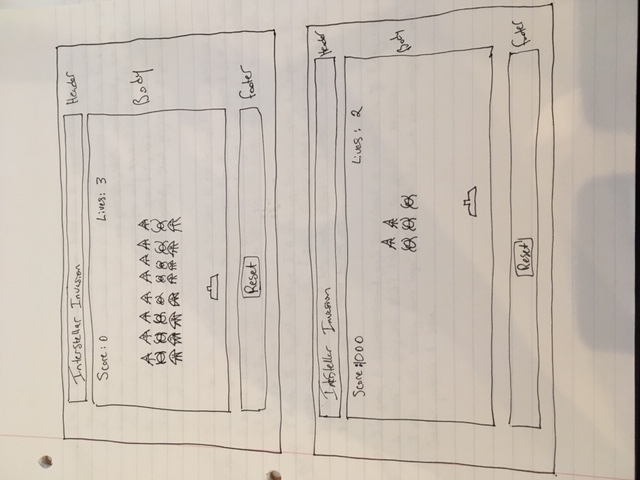 Interstellar Invasion
Header
Score: 0 Lives: 3
Body
Reset
footer
Intstellar Invasion
Header
Score: 1000 Lives: 2
Body
Reset
footer